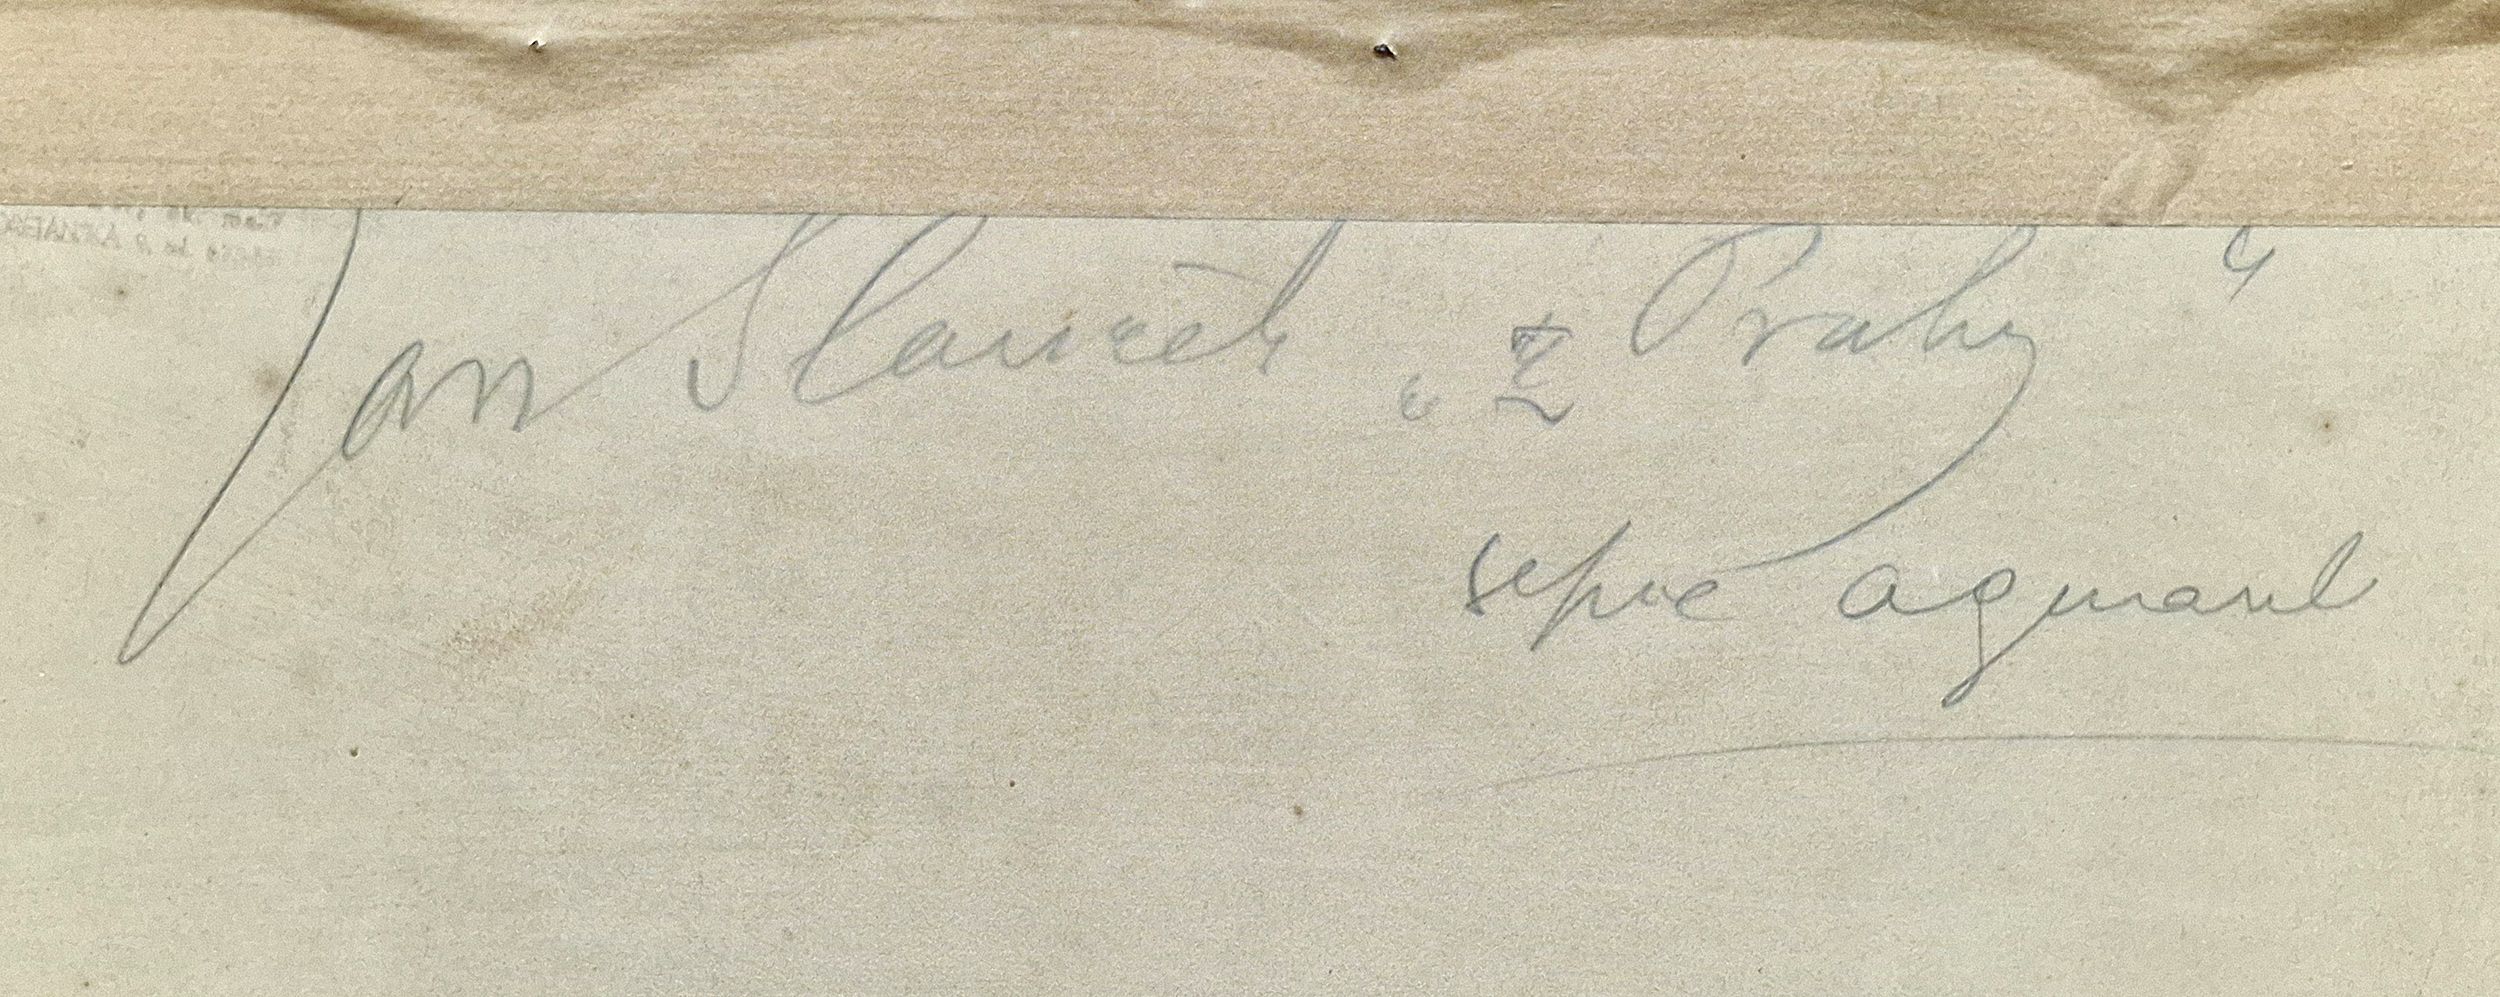 Jan Slavíček „Z Prahy“
sepie aquarel